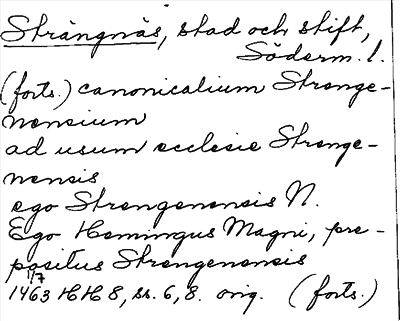 Strängnäs, stad och stift,
Söderm. l.
(forts.) canonicalium Strenge-
nensium
ad usum ecclesie Strenge-
nensis
ego Strengenensis N.
Ego Hemingus Magni, pre-
positus Strengenensis
1/7
1463 HH 8, ss. 6, 8. orig. (forts.)